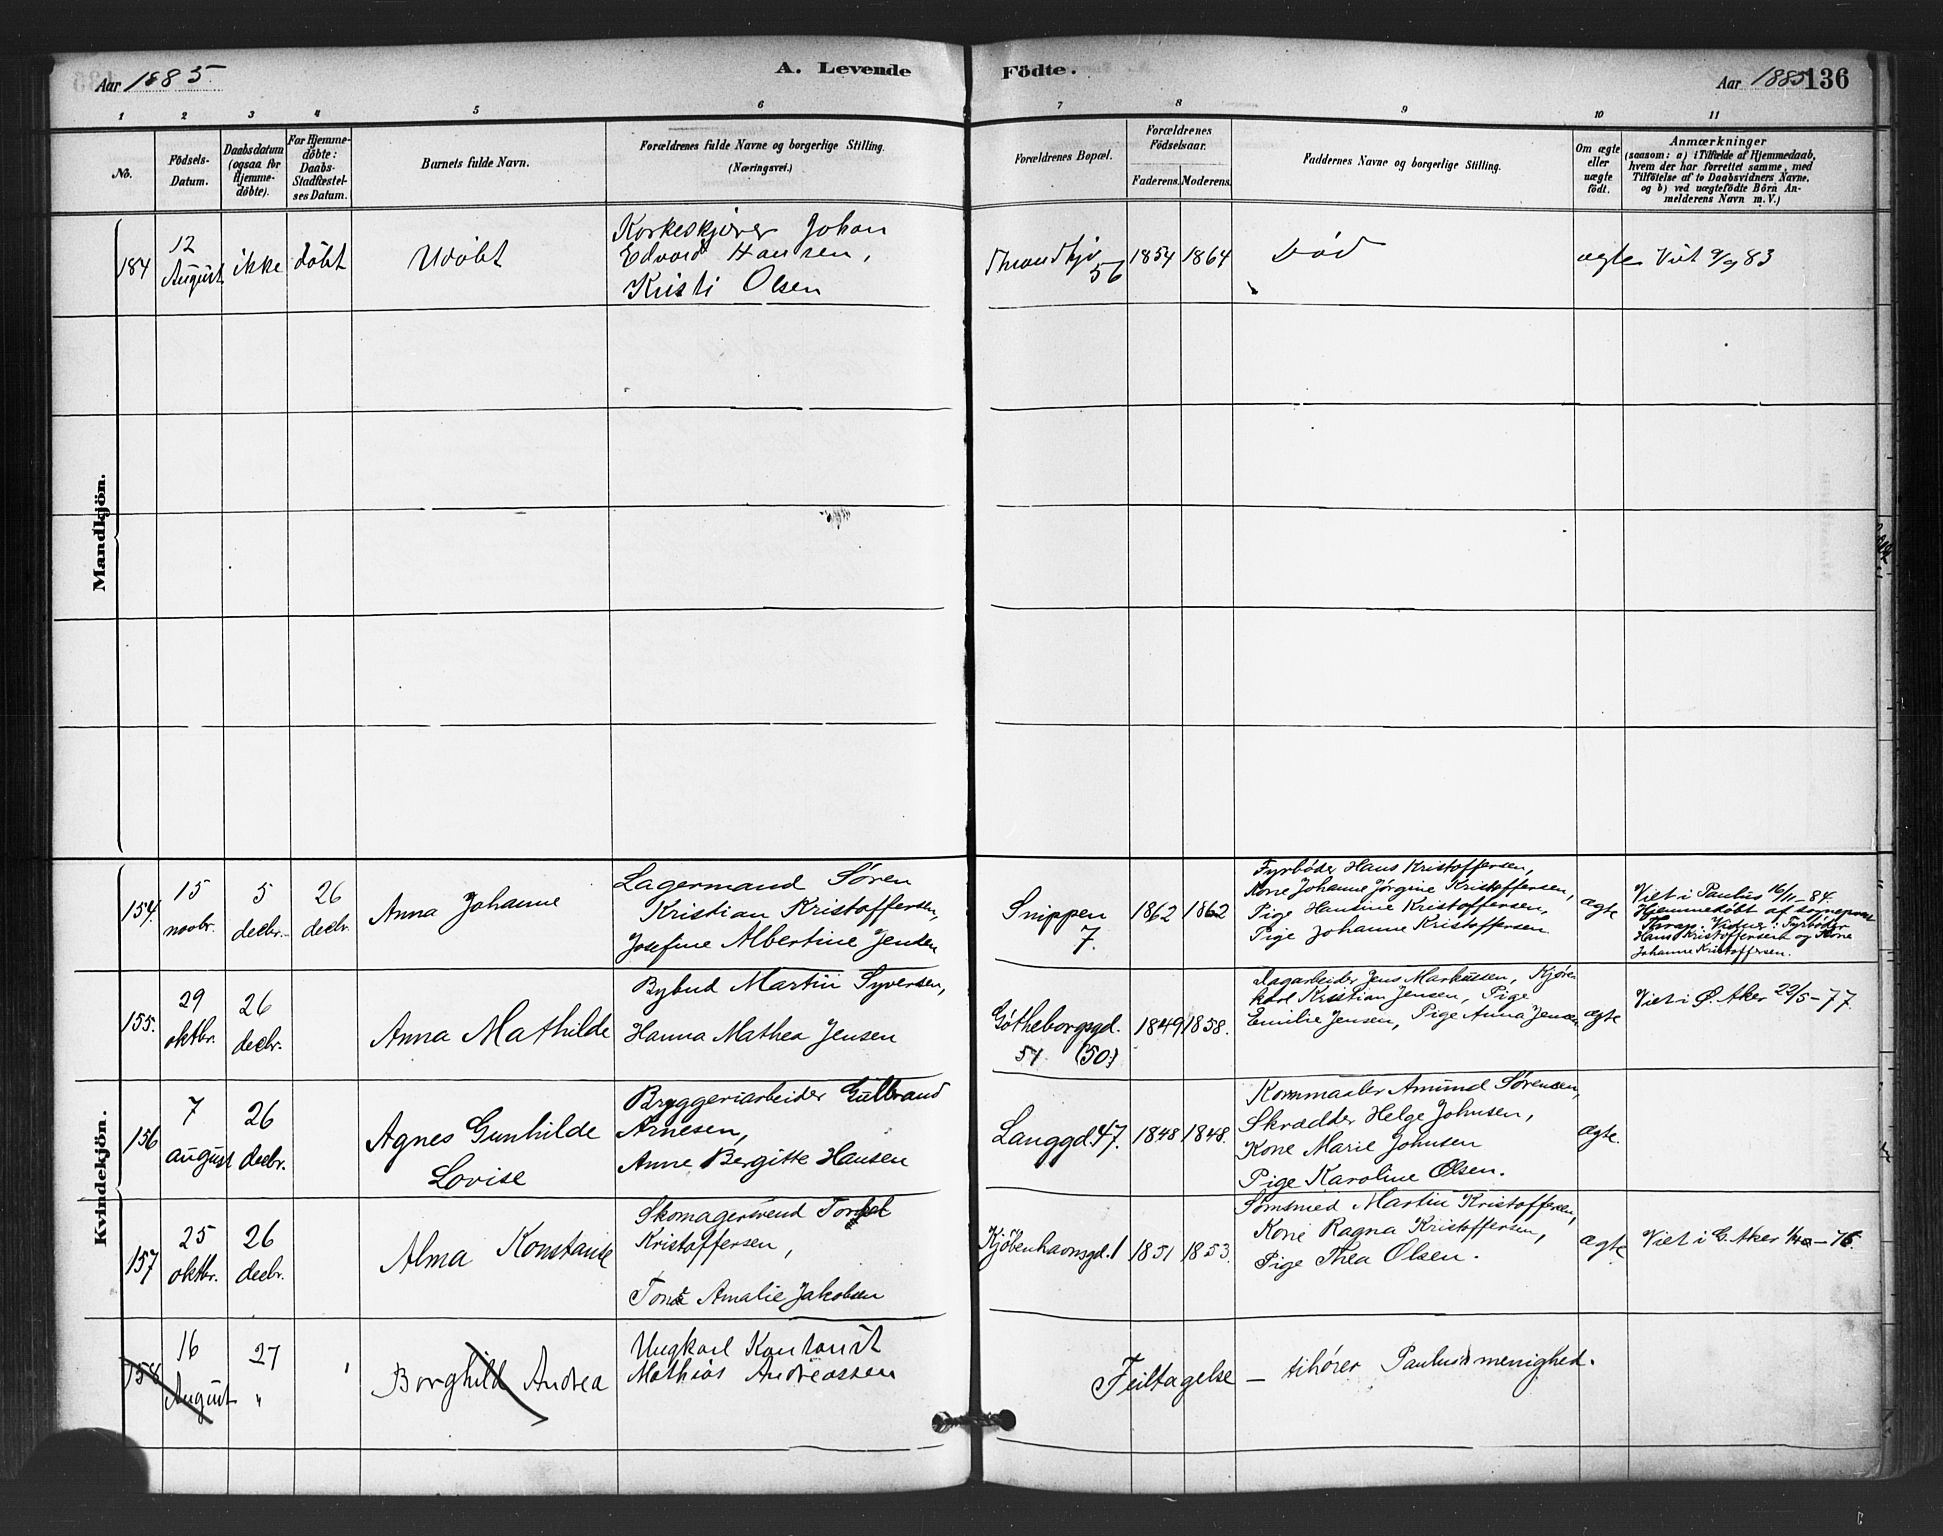 Aar 1885.
A. Levende Födte.
Aar 1885 136
1 2 3 4 5 6 7 8 9 10 11
No.
Födsels-Datum.
Daabsdatum (ogsaa for Hjemme-döbte).
For Hjemme-döbte: Daabs-Stadfæstel-ses Datum.
Barnets fulde Navn.
Forældrenes fulde Navne og borgerlige Stilling.
(Næringsvei.)
Forældrenes Bopæl.
Forældrenes Födselsaar.
Faderens. Moderens.
Faddernes Navne og borgerlige Stilling.
Om ægte eller uægte födt.
Anmærkninger
(saasom: a) i Tilfælde af Hjemmedaab,
hvem der har forrettet samme, med
Tilföielse af to Daabsvidners Navne,
og b) ved uægtefödte Börn An-
melderens Navn m. V.)
Mandkjön.
184
12 August
ikke döbt
Udöbt
Korkeskjærer Johan
Edvard Hansen,
Kristi Olsen
Throndhjv 56
1854 1864
Död
ægte
Viet 9/9 83
Kvindekjön.
154.
15 novbr.
5 decbr.
26 decbr.
Anna Johanne
Lagermand Søren
Kristian Kristoffersen,
Josefine Albertine Jensen
Snippen 7.
1862 1862
Fyrbøder Hans Kristoffersen,
Kone Johanne Jørgine Kristoffersen,
Pige Hansine Kristoffersen,
Pige Johanne Kristoffersen
ægte
Viet i Paulus 16/11-84.
Hjemmedøbt af sognepræst
Thrap. Vidner: Fyrbøder
Hans Kristoffersen og Kone
Johanne Kristoffersen.
155.
29 oktbr.
26 decbr.
Anna Mathilde
Bybud Martin Syversen,
Hanna Mathea Jensen
Gøtheborgsgd. 51 (50)
1849 1858.
Dagarbeider Jens Markussen, Kjøre-
karl Kristian Jensen, Pige
Emilie Jensen, Pige Anna Jensen
ægte
Viet i Ø. Aker 22/5-77.
156
7 august
26 decbr.
Agnes Gunhilde
Lovise
Bryggeriarbeider Gulbrand
Arnesen,
Anne Bergitte Hansen
Langgd. 47.
1848 1848.
Kornmaaler Amund Sørensen,
Skrædder Helge Johnsen,
Kone Marie Johnsen
Pige Karoline Olsen.
ægte.
157
25 oktbr.
26 decbr.
Alma Konstanse
Skomagersvend
Kristoffersen,
Amalie Jakobsen
Kjøbenhavnsgd. 1
1851 1853.
Sømsmed Martin Kristoffersen,
Kone Ragna Kristoffersen,
Pige Thea Olsen.
ægte
Viet i G. Aker
158
16 August
27 "
Borghild Andrea
Ungkarl Kontorist
Mathias Andreassen
Feiltagelse — tihører Paulus menighed.